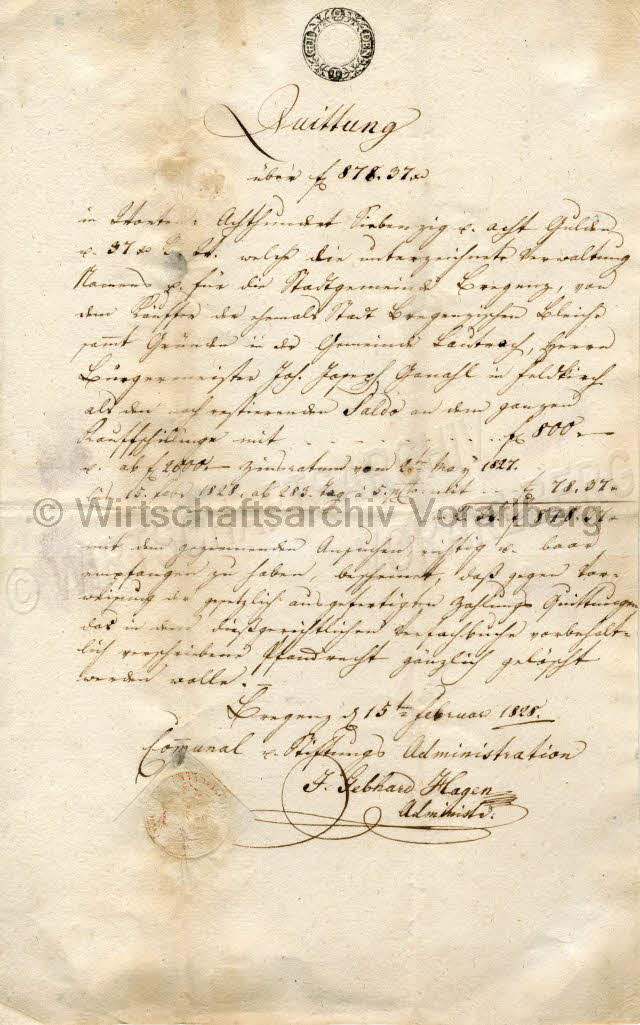 Quittung
über f 878. 37 x
in Worten: Achthundert Siebenzig u. acht Gulden
u. 37 x welche die unterzeichnete Verwaltung
Namens u. für die Stadtgemeinde Bregenz, von
dem Käuffer der ehemals Stadt Bregenzischen Bleiche
sammt Gründen in der Gemeinde Lautrach, Herrn
Bürgermeister Joh. Joseph Ganahl in Feldkirch
als den noch restierenden Saldo an dem ganzen
Kaufschillinge mit . . . . . . . . f 800 –
u. ab f 2000 – Zinsratum vom May 1827.
15. febr. 1828. ab 283. Tag à 5. mit .. f 78. 37 x
f 878. 37 x
© Wirtschaftsarchiv Vorarlberg
mit dem geziemenden Ansuchen richtig u. baar
empfangen zu haben, bescheinet, daß gegen Vor-
weisung der gesetzlich ausgefertigten Zahlungs Quittungen
das in dem dießgerichtlichen Verfachbuche vorbehält-
lich verschriebene Pfandrecht gänzlich gelöscht
werden wolle.
Bregenz d 15ten februar 1828.
Communal u. Stiftungs Administration
J. Gebhard Hagen
Administr.